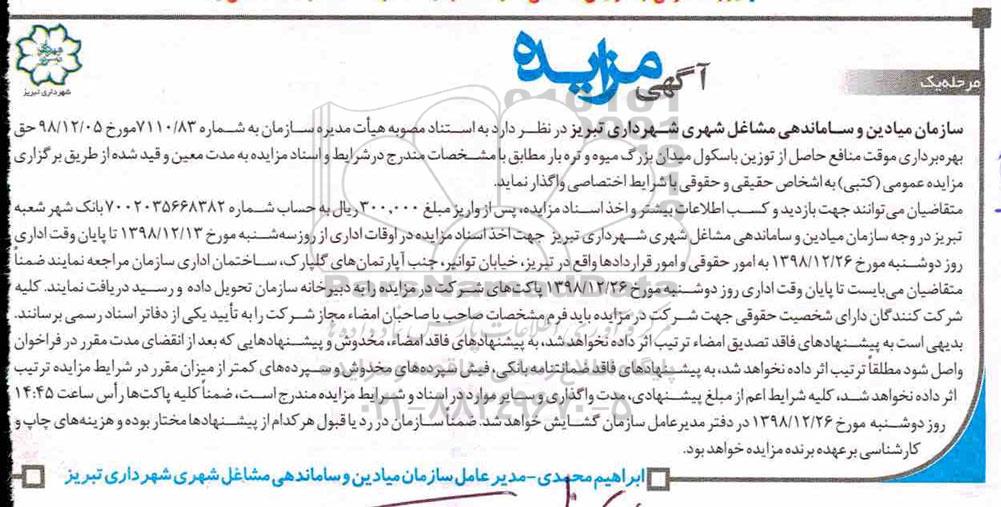 شهرداری تبریز
آگهی مزایده
مرحله یک
سازمان میادین و ساماندهی مشاغل شهری شهرداری تبریز در نظر دارد به استناد مصوبه هیأت مدیره سازمان به شماره ۷۱۱۰/۸۳ مورخ ۹۸/۱۲/۰۵ حق
بهره‌برداری موقت منافع حاصل از توزین باسکول میدان بزرگ میوه و تره بار مطابق با مشخصات مندرج در شرایط و اسناد مزایده به مدت معین و قید شده از طریق برگزاری
مزایده عمومی (کتبی) به اشخاص حقیقی و حقوقی با شرایط اختصاصی واگذار نماید.
متقاضیان می‌توانند جهت بازدید و کسب اطلاعات بیشتر و اخذ اسناد مزایده، پس از واریز مبلغ ۳۰۰,۰۰۰ ریال به حساب شماره ۷۰۰۲۰۳۵۶۶۸۳۸۲ بانک شهر شعبه
تبریز در وجه سازمان میادین و ساماندهی مشاغل شهری شهرداری تبریز جهت اخذ اسناد مزایده در اوقات اداری از روز سه‌شنبه مورخ ۱۳۹۸/۱۲/۱۳ تا پایان وقت اداری
روز دوشنبه مورخ ۱۳۹۸/۱۲/۲۶ به امور حقوقی و امور قراردادها واقع در تبریز، خیابان توانیر، جنب آپارتمان‌های گلپارک، ساختمان اداری سازمان مراجعه نمایند ضمناً
متقاضیان می‌بایست تا پایان وقت اداری روز دوشنبه مورخ ۱۳۹۸/۱۲/۲۶ پاکت‌های شرکت در مزایده را به دبیرخانه سازمان تحویل داده و رسید دریافت نمایند. کلیه
شرکت کنندگان دارای شخصیت حقوقی جهت شرکت در مزایده باید فرم مشخصات صاحب یا صاحبان امضاء مجاز شرکت را به تأیید یکی از دفاتر اسناد رسمی برسانند.
بدیهی است به پیشنهادهای فاقد تصدیق امضاء ترتیب اثر داده نخواهد شد، به پیشنهادهای فاقد امضاء، مخدوش و پیشنهادهایی که بعد از انقضای مدت مقرر در فراخوان
واصل شود مطلقاً ترتیب اثر داده نخواهد شد، به پیشنهادهای فاقد ضمانتنامه بانکی، فیش سپرده‌های مخدوش و سپرده‌های کمتر از میزان مقرر در شرایط مزایده ترتیب
اثر داده نخواهد شد، کلیه شرایط اعم از مبلغ پیشنهادی، مدت واگذاری و سایر موارد در اسناد و شرایط مزایده مندرج است، ضمناً کلیه پاکت‌ها رأس ساعت ۱۴:۴۵
روز دوشنبه مورخ ۱۳۹۸/۱۲/۲۶ در دفتر مدیرعامل سازمان گشایش خواهد شد. ضمناً سازمان در رد یا قبول هر کدام از پیشنهادها مختار بوده و هزینه‌های چاپ و
کارشناسی بر عهده برنده مزایده خواهد بود.
ابراهیم محمدی - مدیر عامل سازمان میادین و ساماندهی مشاغل شهری شهرداری تبریز